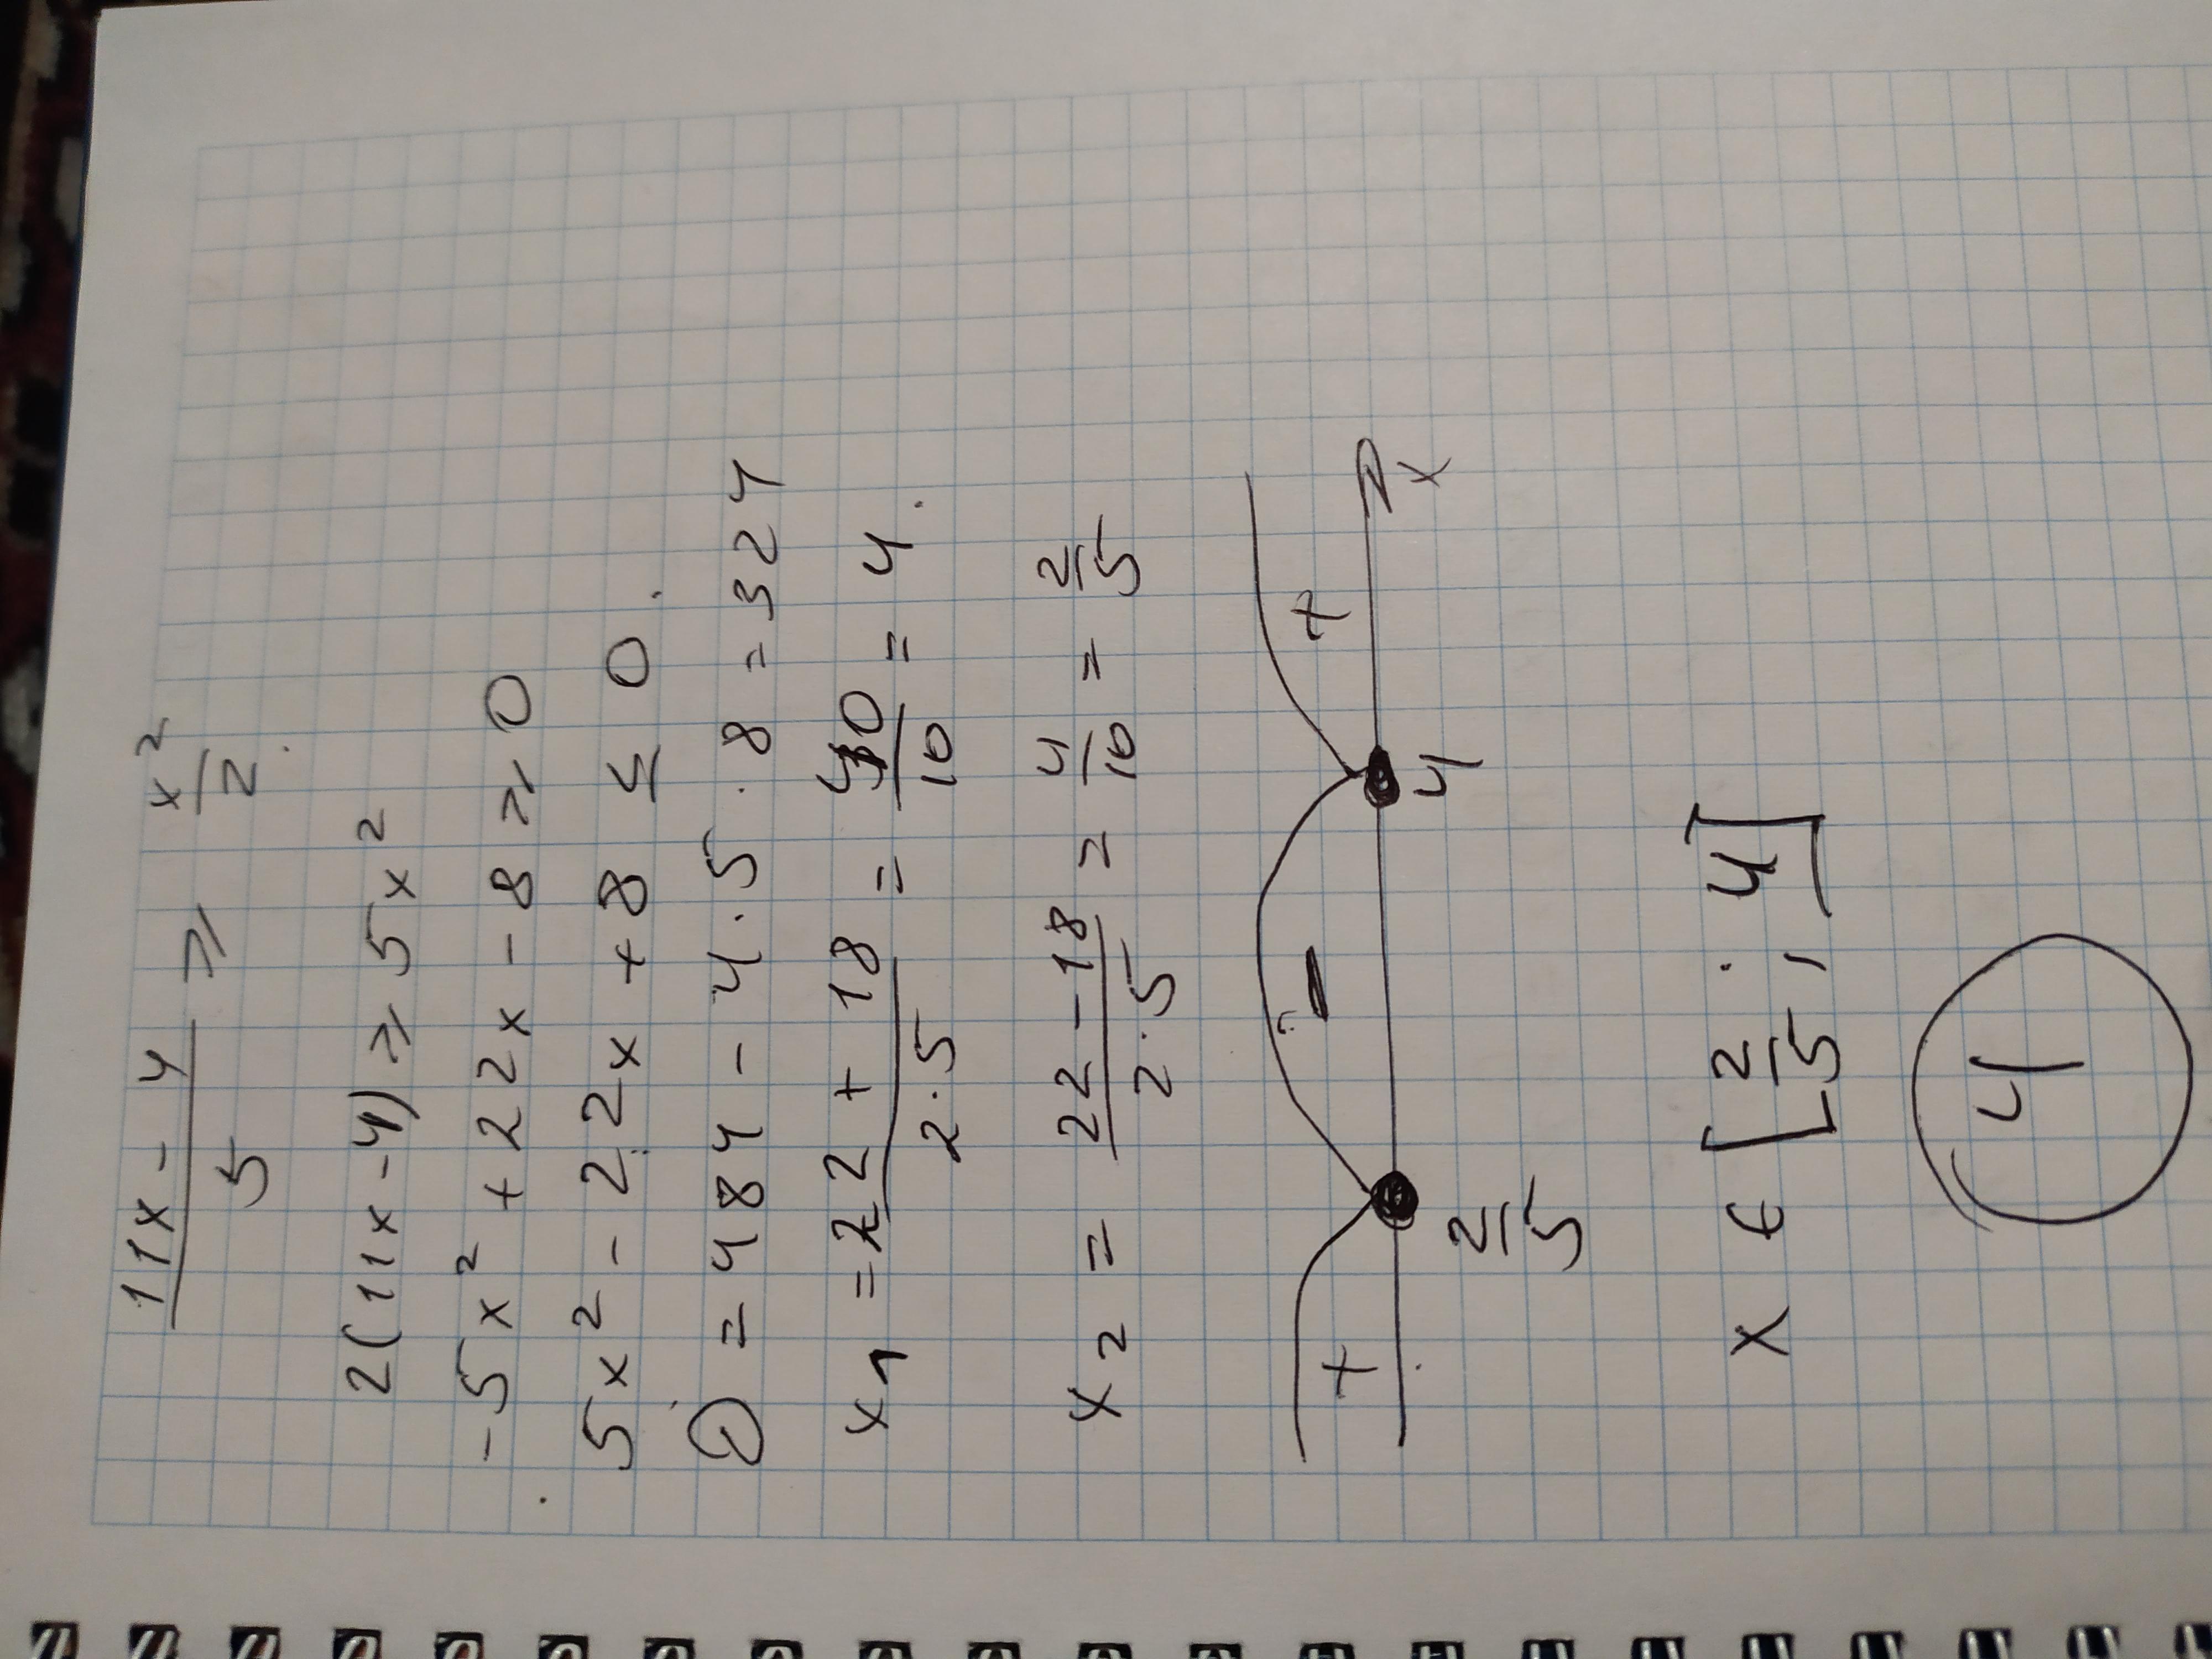 (11x - 4)/5 ⩾ x²/2
2(11x - 4) ⩾ 5x²
-5x² + 22x - 8 ⩾ 0
5x² - 22x + 8 ≤ 0
D = 484 - 4 · 5 · 8 = 324
x₁ = (22 + 18)/(2 · 5) = 40/10 = 4.
x₂ = (22 - 18)/(2 · 5) = 4/10 = 2/5
+ - +
2/5 4 x
x ∈ [2/5; 4]
4